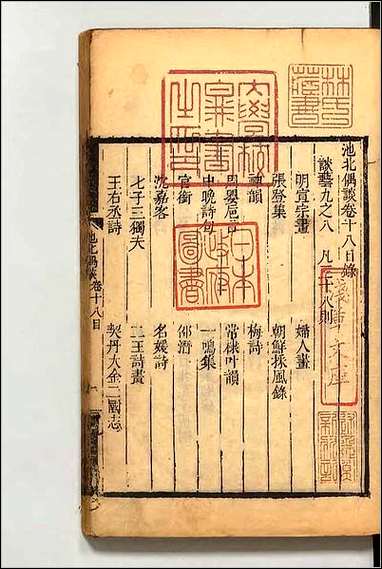 池北偶談卷十八目錄
談藝九之八　凡十八則
明宣宗畫　婦人畫
張登集　朝鮮採風錄
韻　梅詩
周嬰　常棣叶韻
中晚詩句　一鳴集
官銜　邵潛
沈嘉客　名媛詩
七子三獨夫　二王詩畫
王右丞詩　契丹大金二國志
池北偶談　卷十八目
林氏藏書
大學校圖書之印
日本政府圖書
淺草文庫